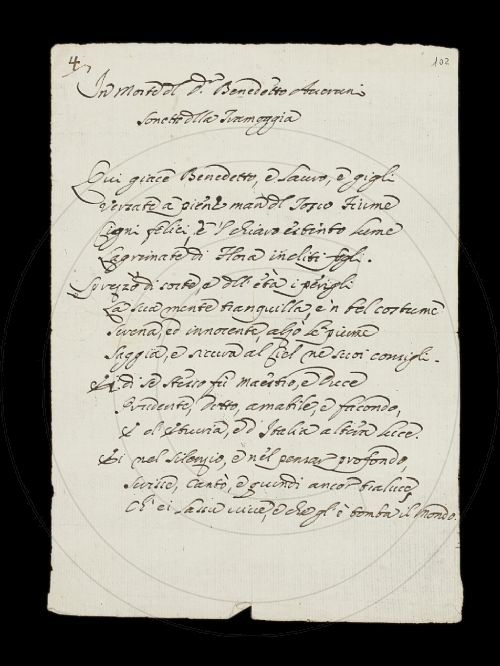 4
102
In Morte del D.r Benedetto Averani
Sonetto della Tramoggia
Qui giace Benedetto, e lauro, e gigli
Versate a piene man del Tosco Fiume
Cigni felici, e 'l chiaro estinto lume
Lagrimate di Flora incliti figli.
Sprezzò di sorte, e dell' età i perigli
La sua mente tranquilla, e 'n bel costume
Serena, ed innocente, alzò le piume
Saggia, e sicura al Ciel ne suoi consigli.
Ei di se stesso fu Maestro, e Duce
Prudente, Dotto, amabile, e facondo,
E d' Etruria, e d' Italia altera luce.
Ei nel silenzio, e nel pensar profondo,
Scrisse, Cantò, e quindi ancor traluce,
Ch' ei lassù vive, e che gl' è tomba il Mondo.